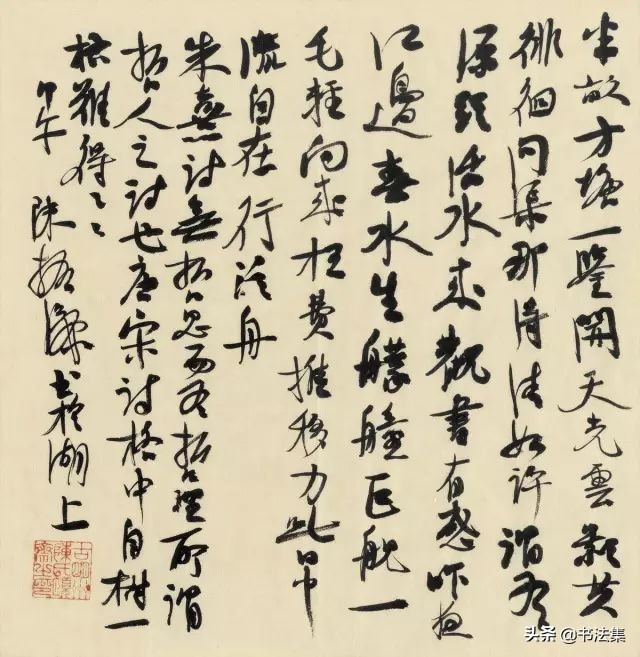 半畝方塘一鑒開天光雲影共
徘徊問渠那得清如許謂有
源頭活水來觀書有感昨夜
江邊春水生艨艟巨艦一
毛輕向來枉費推移力此日中
流自在行泛舟
朱熹詩無哲思而有哲理所謂
哲人之詩也唐宋詩格中自樹一
格難得々々
甲午 陳振濂書於湖上
头条 @书法集